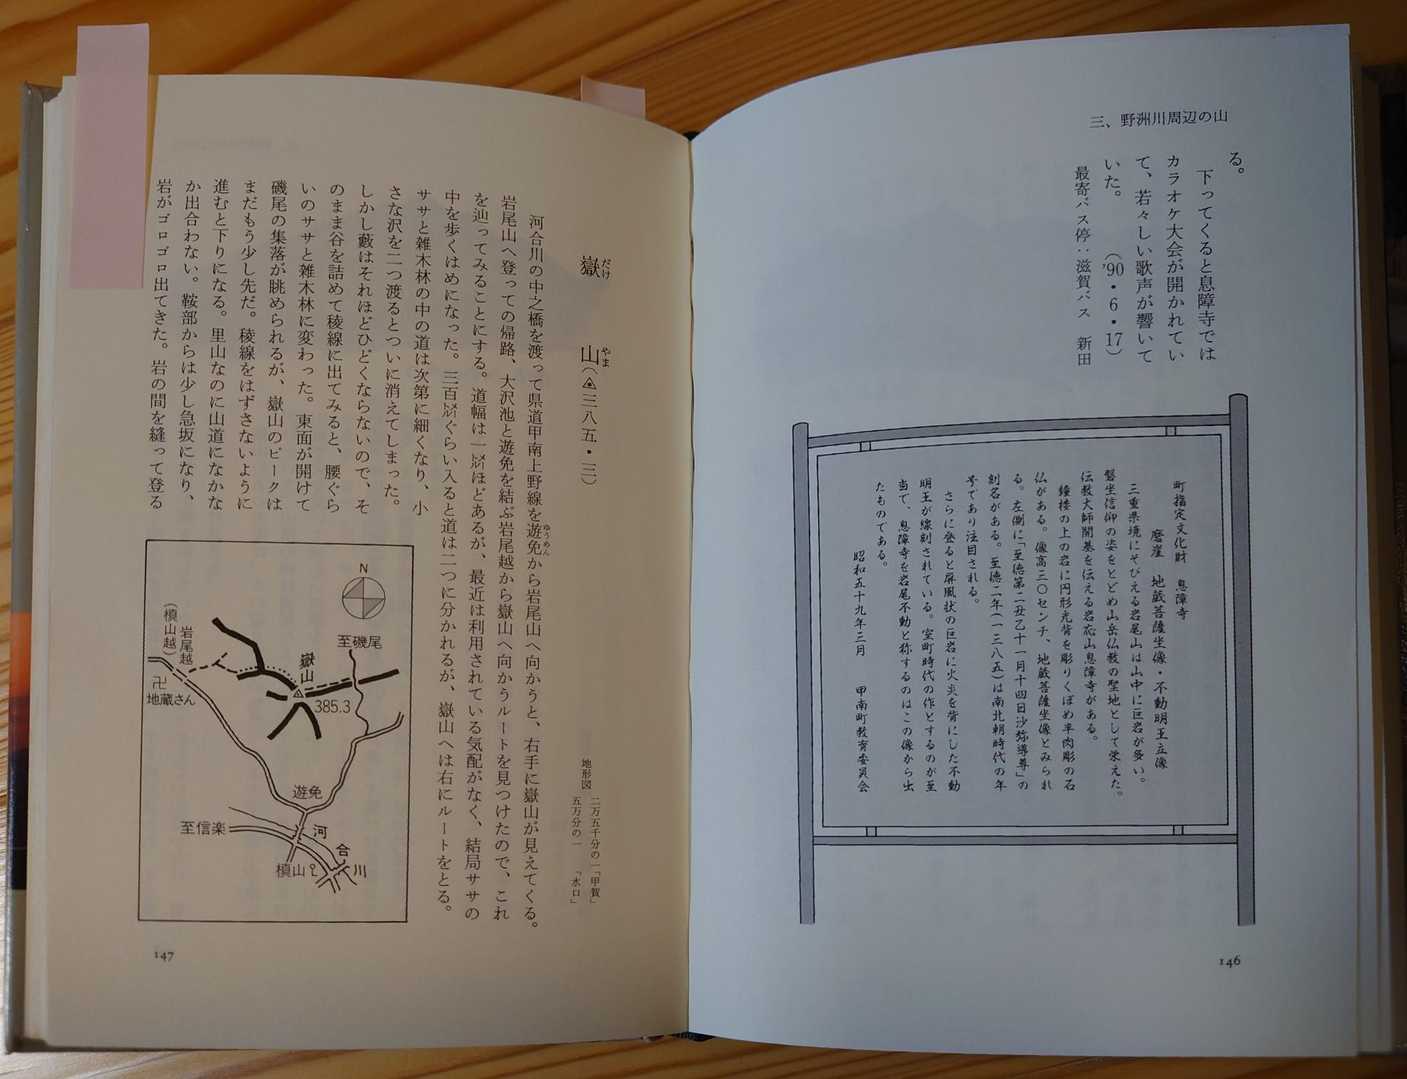 三、野洲川周辺の山
る。
下ってくると息障寺では
カラオケ大会が開かれてい
て、若々しい歌声が響いて
いた。　（'90・6・17）
最寄バス停：滋賀バス　新田
町指定文化財　息障寺
磨崖　地蔵菩薩坐像・不動明王立像
三重県境にそびえる岩尾山は山中に巨岩が多い。
磐坐信仰の姿をとどめ山岳仏教の聖地として栄えた。
伝教大師開基を伝える岩応山息障寺がある。
鐘楼の上の岩に円形光背を彫りくぼめ半肉彫の石
仏がある。像高三〇センチ、地蔵菩薩坐像とみられ
る。左側に「至徳第二丑乙十一月十四日沙弥導尊」の
刻名がある。至徳二年（一三八五）は南北朝時代の年
号であり注目される。
さらに登ると屏風状の巨岩に火炎を背にした不動
明王が線刻されている。室町時代の作とするのが至
当で、息障寺を岩尾不動と称するのはこの像から出
たものである。
昭和五十九年三月　甲南町教育委員会
146
嶽山（三八五・三）
だけ　やま
地形図　二万五千分の一「甲賀」
五万分の一　「水口」
河合川の中之橋を渡って県道甲南上野線を遊免から岩尾山へ向かうと、右手に嶽山が見えてくる。
ゆうめん
岩尾山へ登っての帰路、大沢池と遊免を結ぶ岩尾越から嶽山へ向かうルートを見つけたので、これ
を辿ってみることにする。道幅は一㍍ほどあるが、最近は利用されている気配がなく、結局ササの
中を歩くはめになった。三百㍍ぐらい入ると道は二つに分かれるが、嶽山へは右にルートをとる。
ササと雑木林の中の道は次第に細くなり、小
さな沢を二つ渡るとついに消えてしまった。
しかし藪はそれほどひどくならないので、そ
のまま谷を詰めて稜線に出てみると、腰ぐら
いのササと雑木林に変わった。東面が開けて
磯尾の集落が眺められるが、嶽山のピークは
まだもう少し先だ。稜線をはずさないように
進むと下りになる。里山なのに山道になかな
か出合わない。鞍部からは少し急坂になり、
岩がゴロゴロ出てきた。岩の間を縫って登る
N
至磯尾
嶽山
385.3
岩尾越
（槙山越）
卍
地蔵さん
遊免
至信楽
河合川
槙山
147